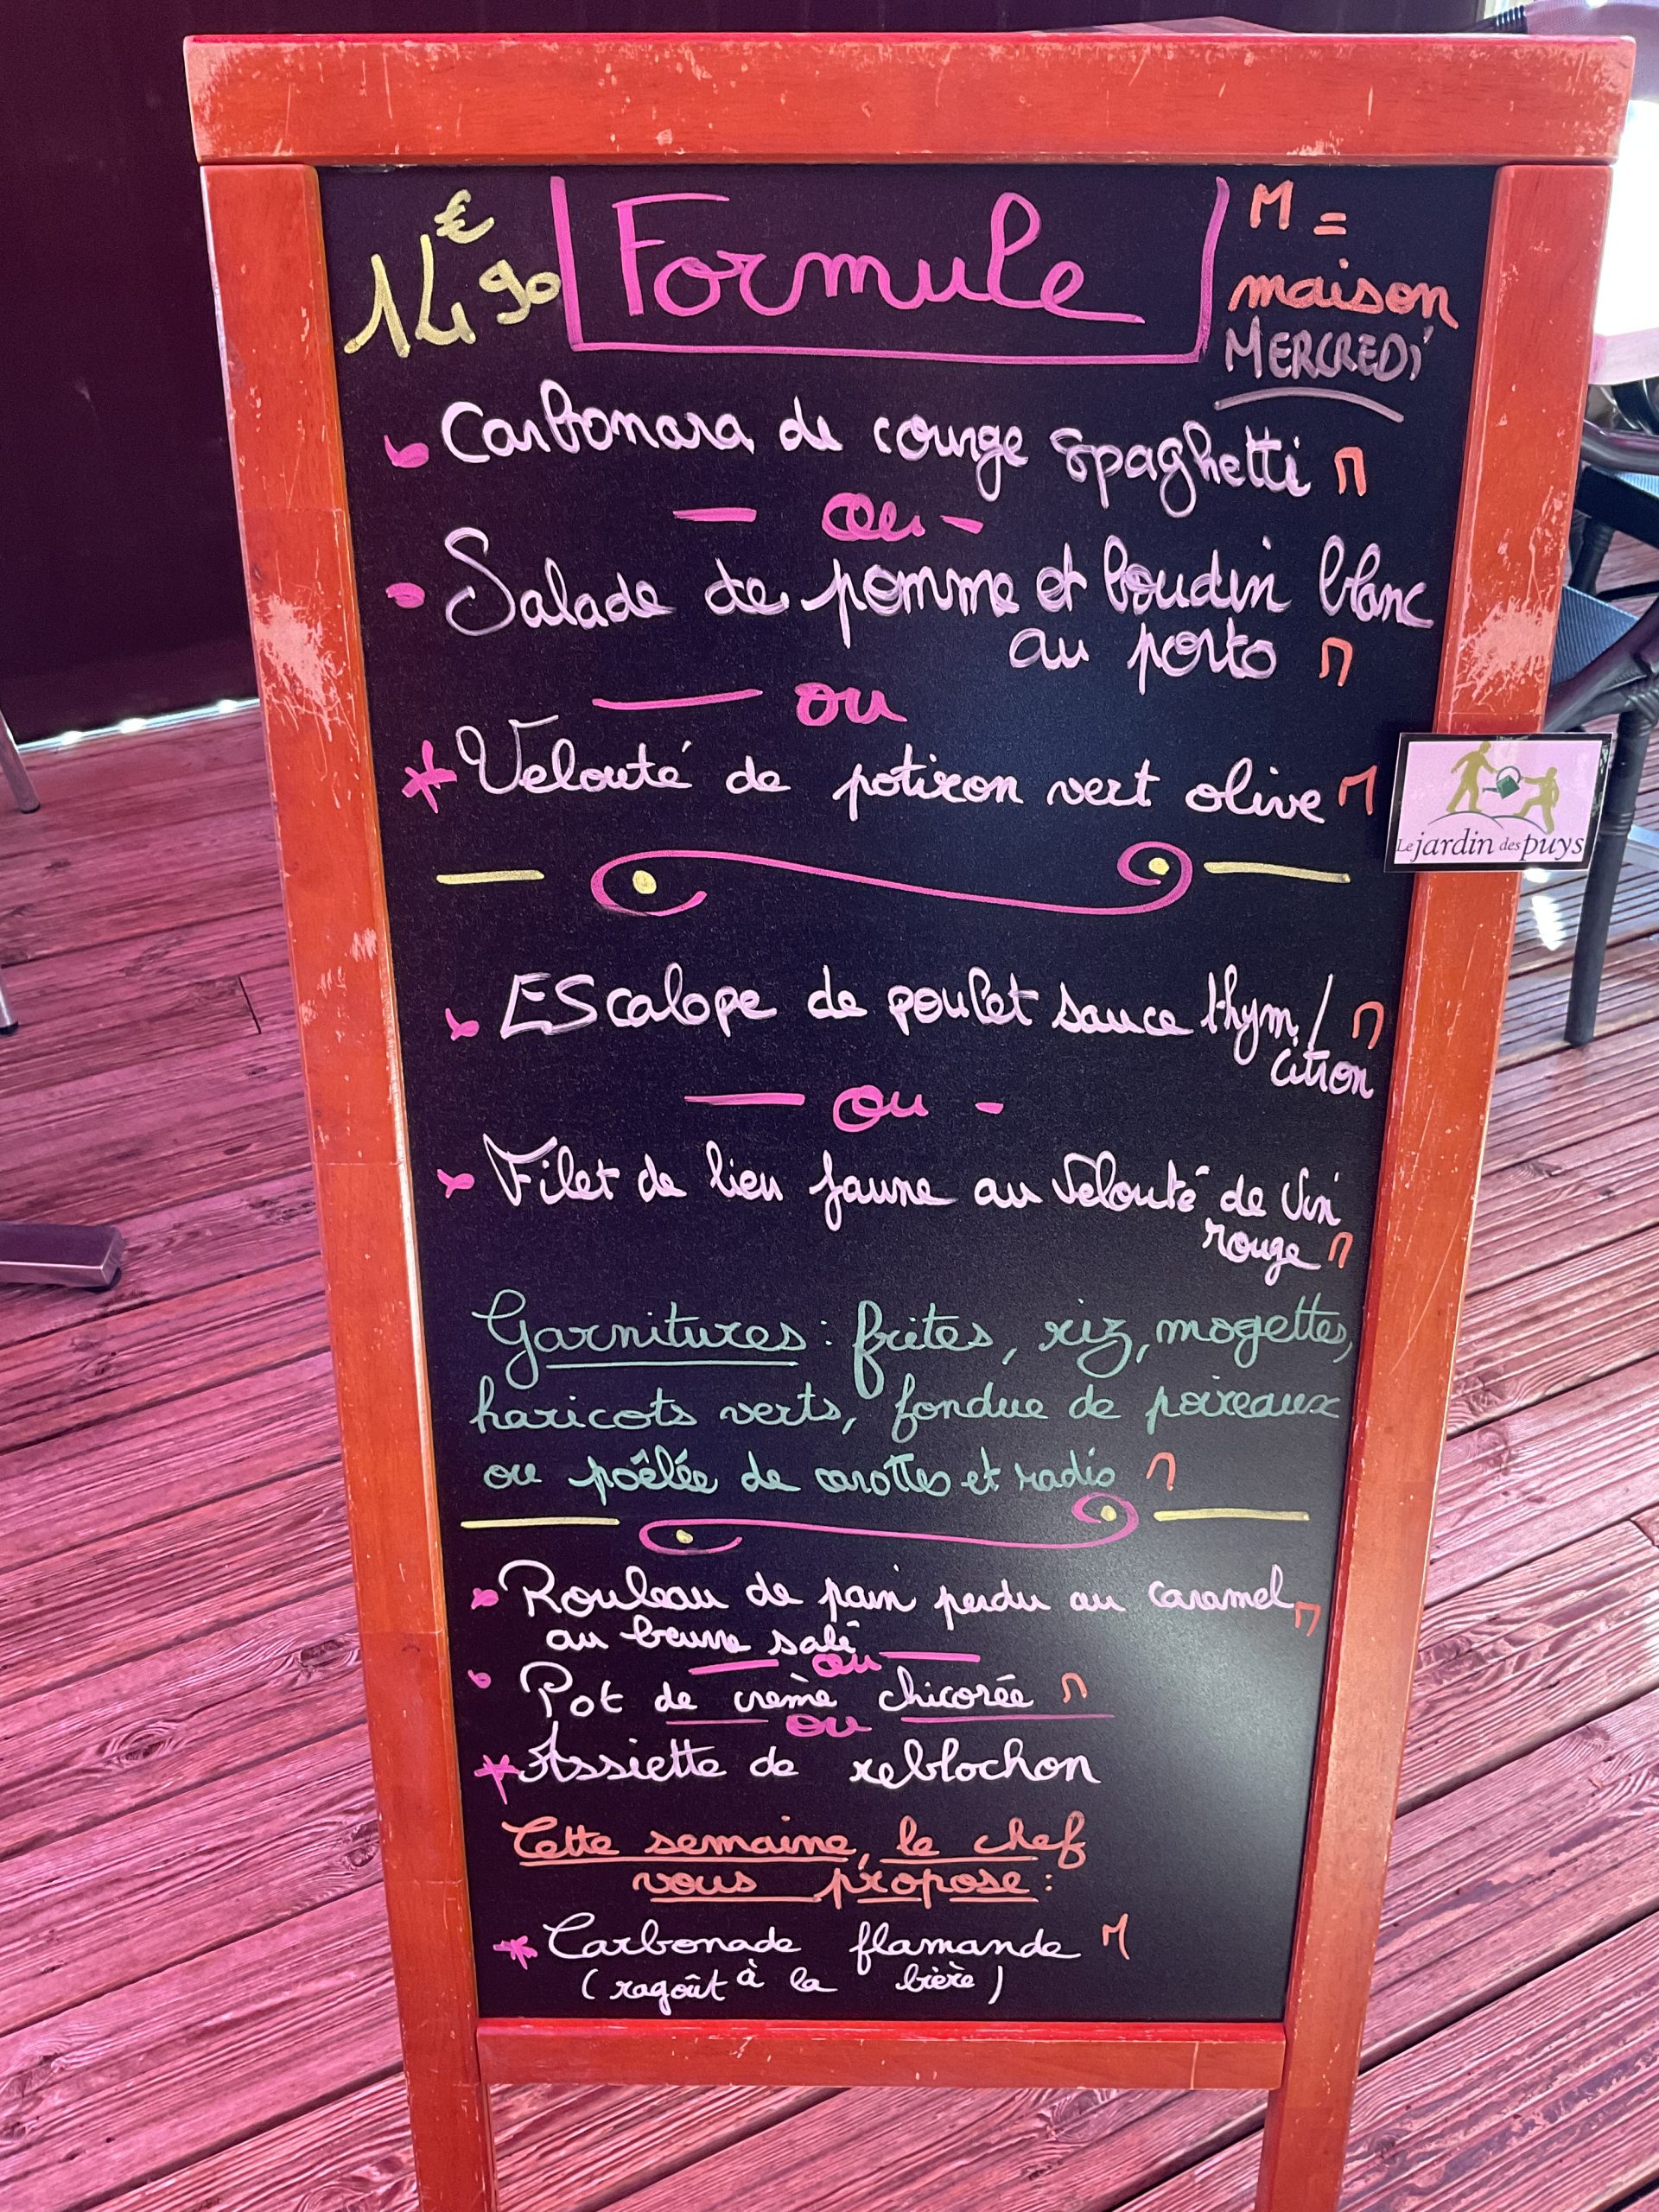 14€90 Formule M =
maison
MERCREDI
Carbonara de courge spaghetti M
- ou -
Salade de pomme et boudin blanc
au porto M
- ou
Velouté de potiron vert olive M
Le jardin des puys
Escalope de poulet sauce thym / M
citron
- ou -
Filet de lieu jaune au velouté de vin
rouge M
Garnitures : frites, riz, mogettes,
haricots verts, fondue de poireaux
ou poêlée de carottes et radis M
Rouleau de pain perdu au caramel M
au beurre salé
- ou -
Pot de crème chicorée M
- ou -
Assiette de reblochon
Cette semaine, le chef
vous propose :
Carbonade flamande M
(ragoût à la bière)